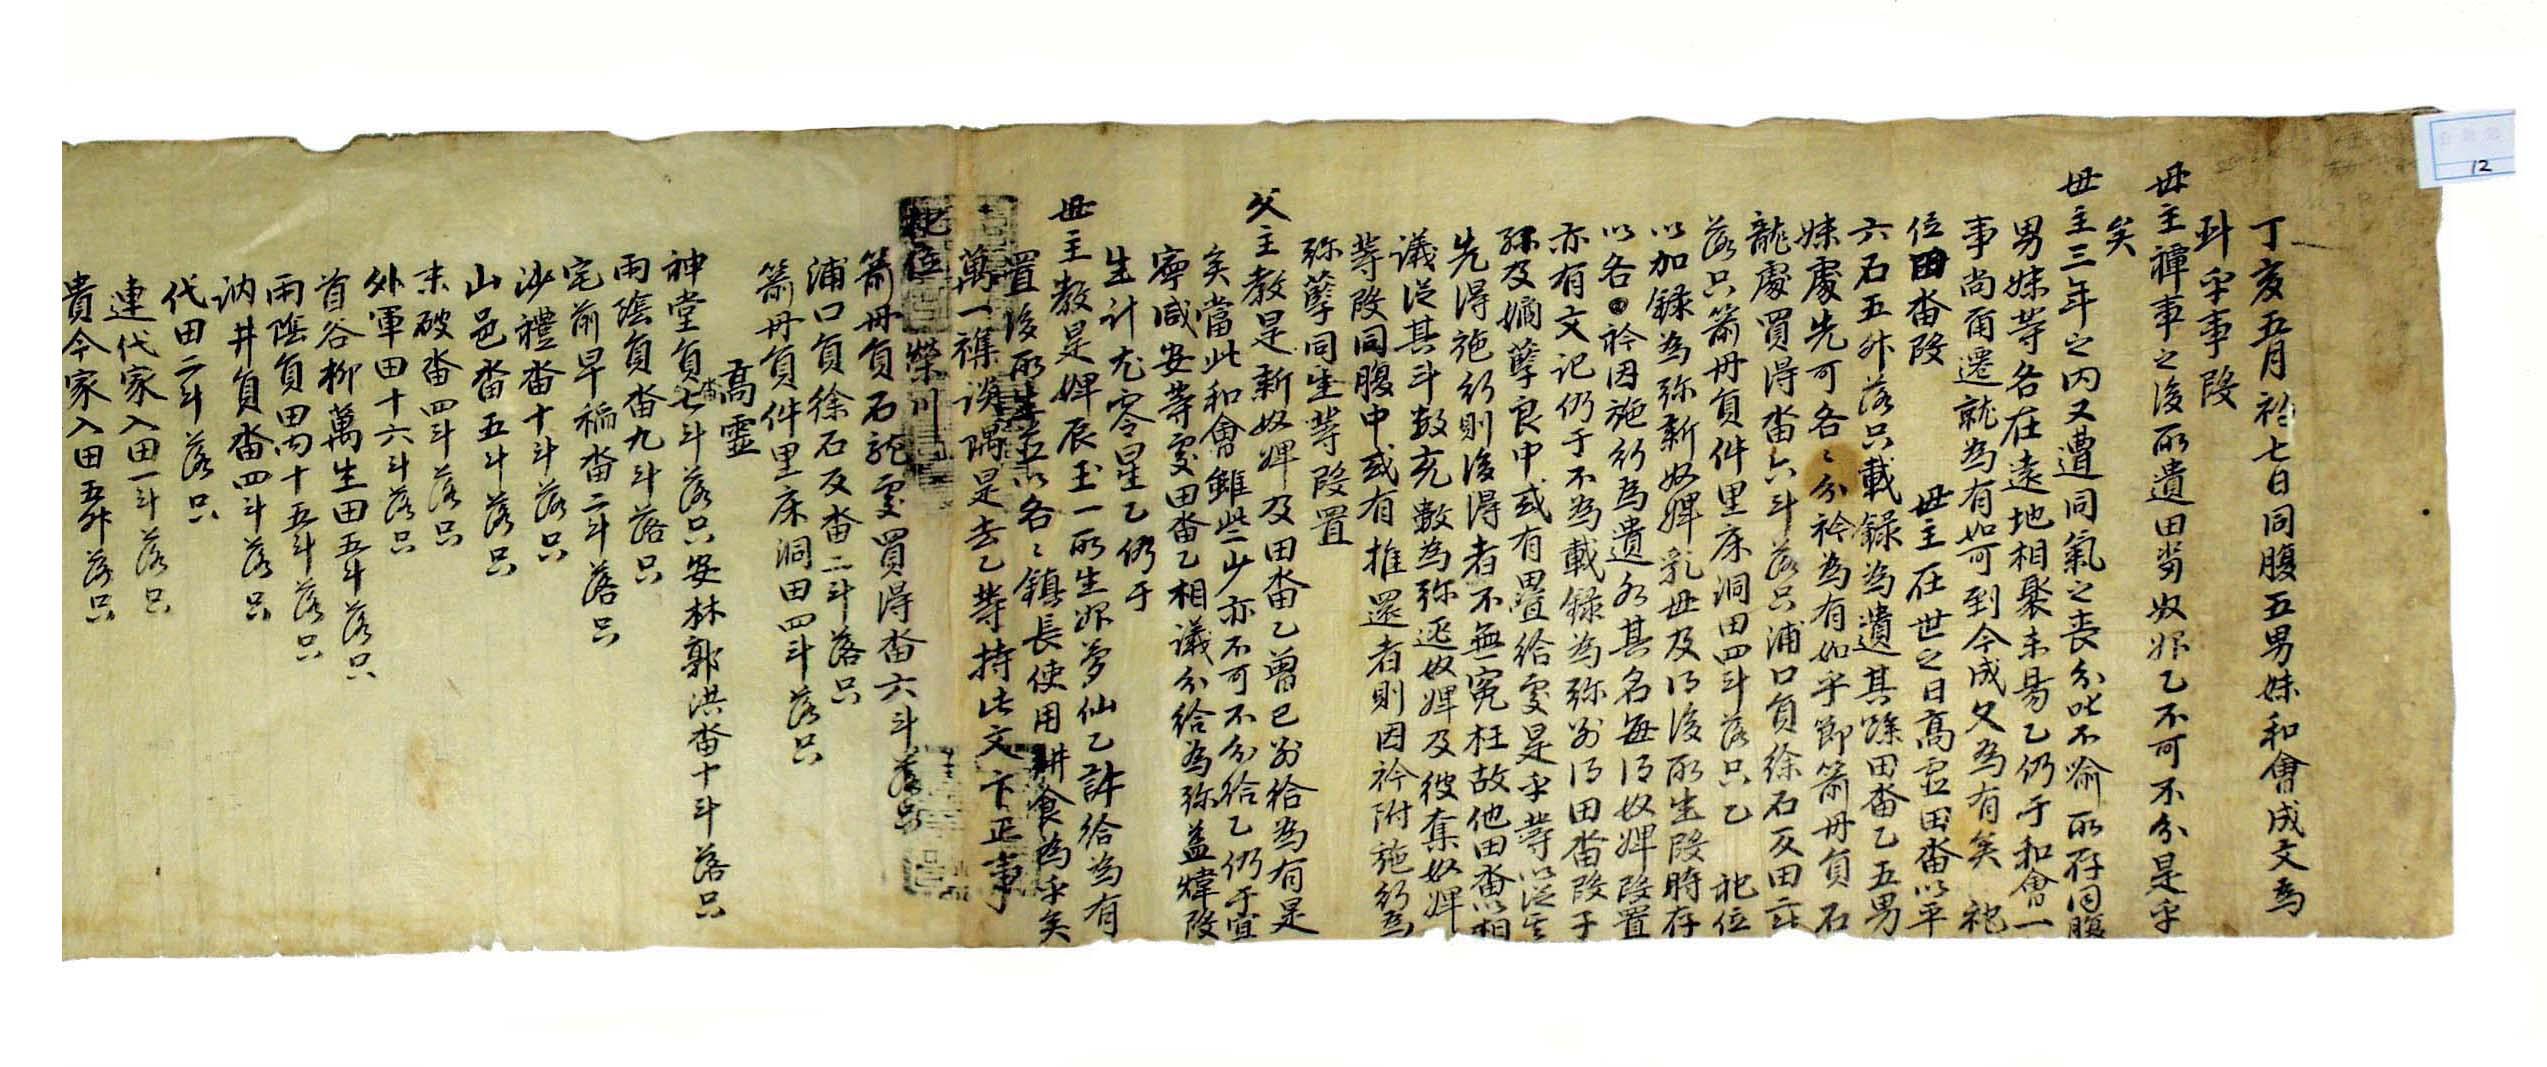 丁亥五月初七日同腹五男妹和會成文爲
卧乎事段
母主禫事之後所遺田畓奴婢乙不可不分是乎
矣
母主三年之內又遭同氣之喪分叱不喩所存同腹
男妹等各在遠地相聚未易乙仍于和會一
事尙爾遷就爲有如可到今成文爲有矣 祀
位田畓段 母主在世之日高靈田畓以平
六石五斗落只載錄爲遺其餘田畓乙五男
妹處先可各〻分衿爲有如乎節簫丹員石
龍處買得畓六斗落只浦口員徐石反田
落只簫丹員件里床洞田四斗落只乙 祀位
以加錄爲弥新奴婢乳母及得後所生段時存
以各衿因施行爲遺各其名每得奴婢段置
亦有文記仍于不爲載錄爲弥別得田畓段子
孫及嫡孽良中或有斗量給處是乎等以
先得施行則後得者不無寃枉故他田畓以相
議從其斗數充數爲弥逃奴婢及彼奪奴婢
等段同腹中或有推還者則因衿附施行爲
弥孽同生等段置
父主教是新奴婢及田畓乙曾已別給爲有是
矣當此和會雖些少亦不可不分給乙仍于宜
寧咸安等處田畓乙相議分給爲弥益煒段
生計尤零星乙仍于
母主教是婢辰玉一所生婢夢仙乙許給爲有
置後所生并以各〻鎭長使用耕食爲乎矣
萬一雜談隅是去乙等持此文卞正事
祀位 榮川
簫丹員石龍處買得畓六斗落只
浦口員徐石反畓二斗落只
簫丹員件里床洞田四斗落只
高靈
神堂員畓七斗落只安林郭洪畓十斗落只
雨陰員畓九斗落只
宅前早稻畓二斗落只
沙禮畓十斗落只
山邑畓五斗落只
末破畓四斗落只
外軍田十六斗落只
首谷柳萬生田五斗落只
雨陰員田十五斗落只
汭井員畓四斗落只
代田二斗落只
連代家入田一斗落只
貴今家入田五升落只
12